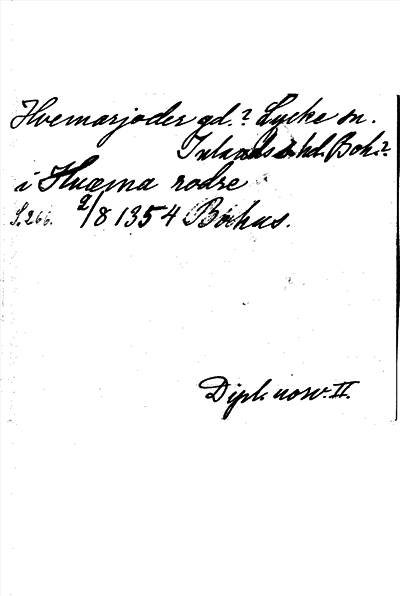 Hvemarjoder gd.? Lycke sn.
Inlands hd. Boh.?
i Huæma rodre
S. 266. 2/8 1354 Bohus.
Dipl. norv. II.